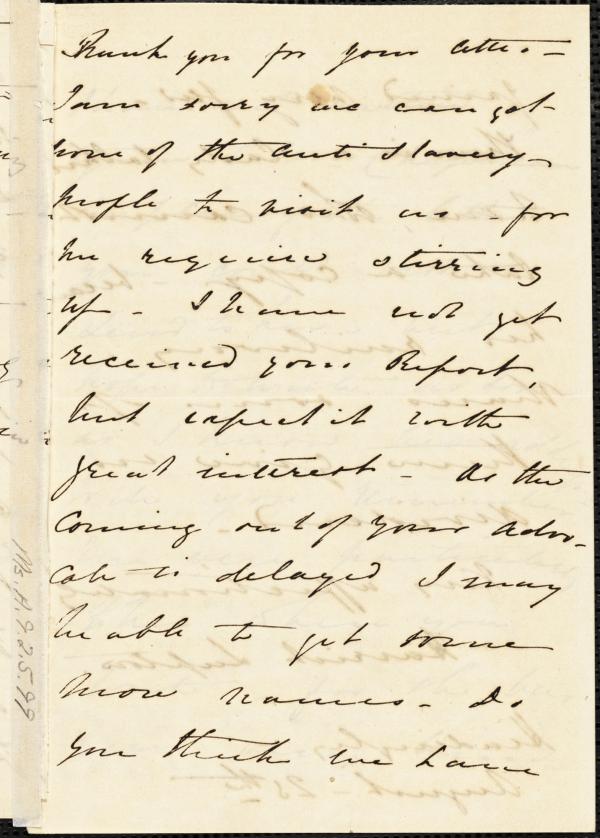 Thank you for your letter -
I am sorry we can get
none of the Anti Slavery
people to visit us - for
we require stirring
up - I have not yet
received your Report,
but expect it with
great interest - As the
coming out of your Advo-
cate is delayed I may
be able to get some
more names - Do
you think we have
Ms. A.9.2.5.